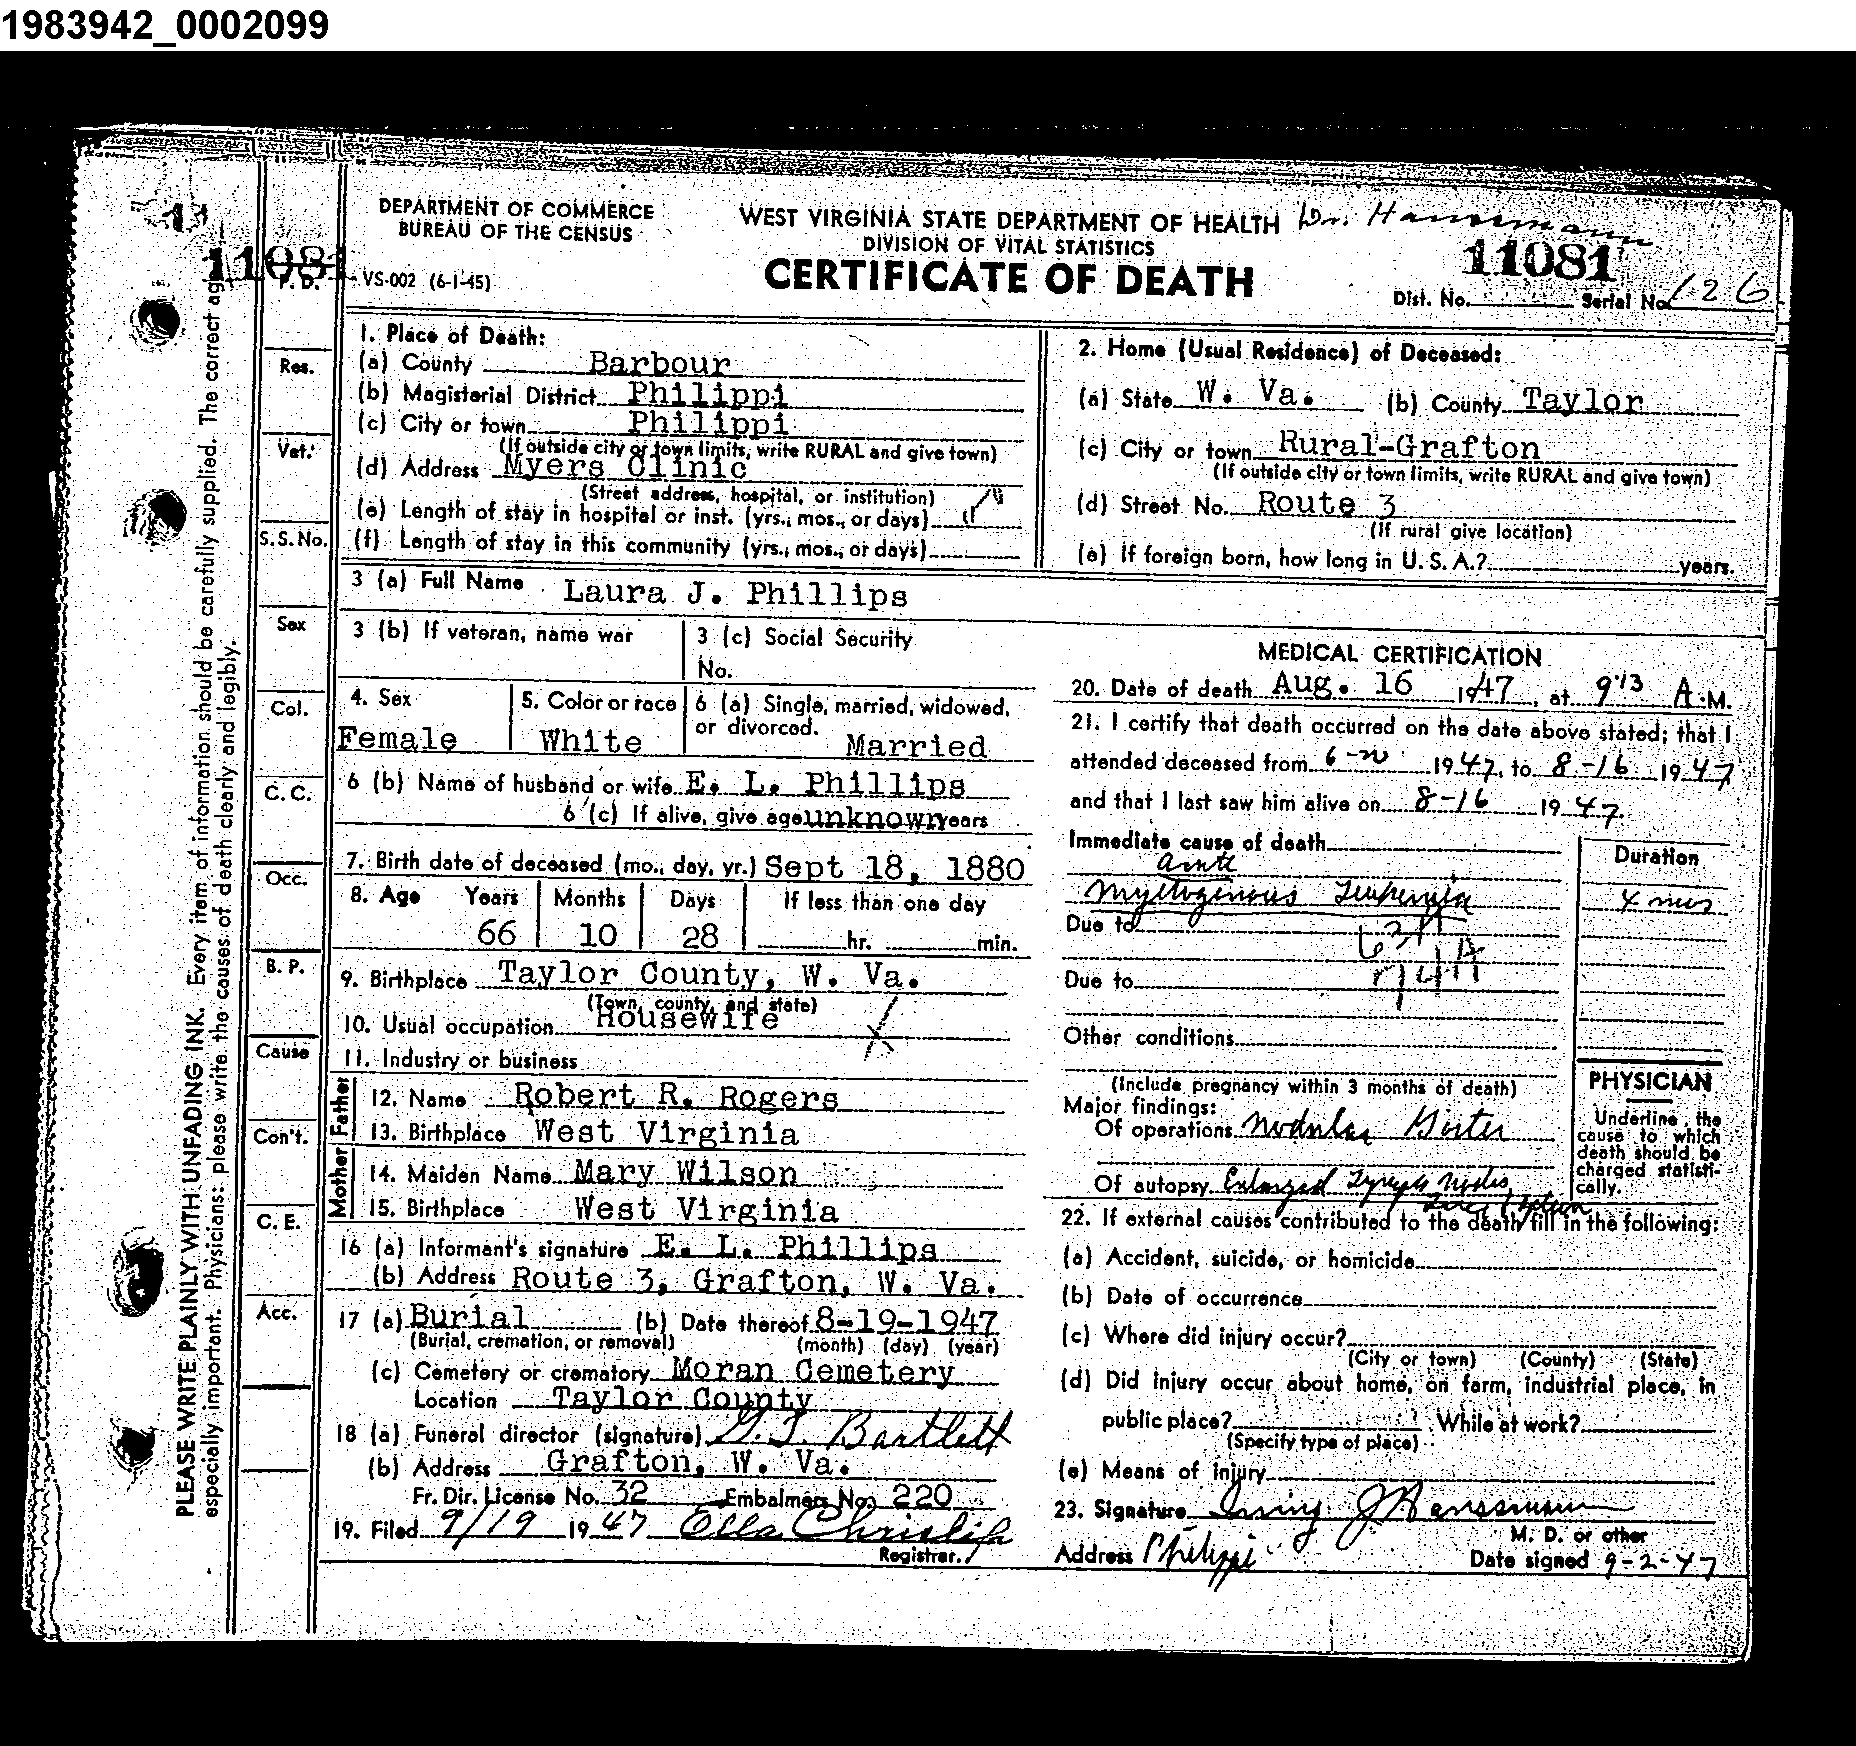 1983942_0002099
DEPARTMENT OF COMMERCE
BUREAU OF THE CENSUS
WEST VIRGINIA STATE DEPARTMENT OF HEALTH Dr. Hanssmann
DIVISION OF VITAL STATISTICS
11081
11081
P. D.
VS-002 (6-1-45)
CERTIFICATE OF DEATH
Dist. No. Serial No. 126
PLEASE WRITE PLAINLY WITH UNFADING INK. Every item of information should be carefully supplied. The correct age
especially important. Physicians: please write the causes of death clearly and legibly.
Res.
Vet.
S.S. No.
Sex
Col.
C. C.
Occ.
B. P.
Cause
Con't.
C. E.
Acc.
1. Place of Death:
(a) County Barbour
(b) Magisterial District Philippi
(c) City or town Philippi
(If outside city or town limits, write RURAL and give town)
(d) Address Myers Clinic
(Street address, hospital, or institution)
(e) Length of stay in hospital or inst. (yrs., mos., or days)
(f) Length of stay in this community (yrs., mos., or days)
2. Home (Usual Residence) of Deceased:
(a) State W. Va. (b) County Taylor
(c) City or town Rural-Grafton
(If outside city or town limits, write RURAL and give town)
(d) Street No. Route 3
(If rural give location)
(e) If foreign born, how long in U. S. A.? years.
3 (a) Full Name Laura J. Phillips
3 (b) If veteran, name war
3 (c) Social Security
No.
4. Sex
Female
5. Color or race
White
6 (a) Single, married, widowed,
or divorced. Married
6 (b) Name of husband or wife E. L. Phillips
6 (c) If alive, give age unknown years
7. Birth date of deceased (mo., day, yr.) Sept 18, 1880
8. Age Years Months Days If less than one day
66 10 28 hr. min.
9. Birthplace Taylor County, W. Va.
(Town, county, and state)
10. Usual occupation Housewife
11. Industry or business
Father
12. Name Robert R. Rogers
13. Birthplace West Virginia
Mother
14. Maiden Name Mary Wilson
15. Birthplace West Virginia
16 (a) Informant's signature E. L. Phillips
(b) Address Route 3, Grafton, W. Va.
17 (a) Burial (b) Date thereof 8-19-1947
(Burial, cremation, or removal) (month) (day) (year)
(c) Cemetery or crematory Moran Cemetery
Location Taylor County
18 (a) Funeral director (signature) G. T. Bartlett
(b) Address Grafton, W. Va.
Fr. Dir. License No. 32 Embalmers No. 220
19. Filed 9/19 1947 Ella
Registrar.
MEDICAL CERTIFICATION
20. Date of death Aug. 16 1947, at 9:13 A.M.
21. I certify that death occurred on the date above stated; that I
attended deceased from 1947, to 8-16 1947
and that I last saw him alive on 8-16 1947.
Immediate cause of death
acute
Myelogenous Leukemia
Duration
4 mos
Due to
Due to
Other conditions
(Include pregnancy within 3 months of death)
Major findings:
Of operations Nodular Goiter
Of autopsy Enlarged Lymph Nodes
PHYSICIAN
Underline the
cause to which
death should be
charged statisti-
cally.
22. If external causes contributed to the death fill in the following:
(a) Accident, suicide, or homicide
(b) Date of occurrence
(c) Where did injury occur?
(City or town) (County) (State)
(d) Did injury occur about home, on farm, industrial place, in
public place? While at work?
(Specify type of place)
(e) Means of injury
23. Signature Irving J Hanssmann
M. D. or other
Address Philippi Date signed 9-2-47